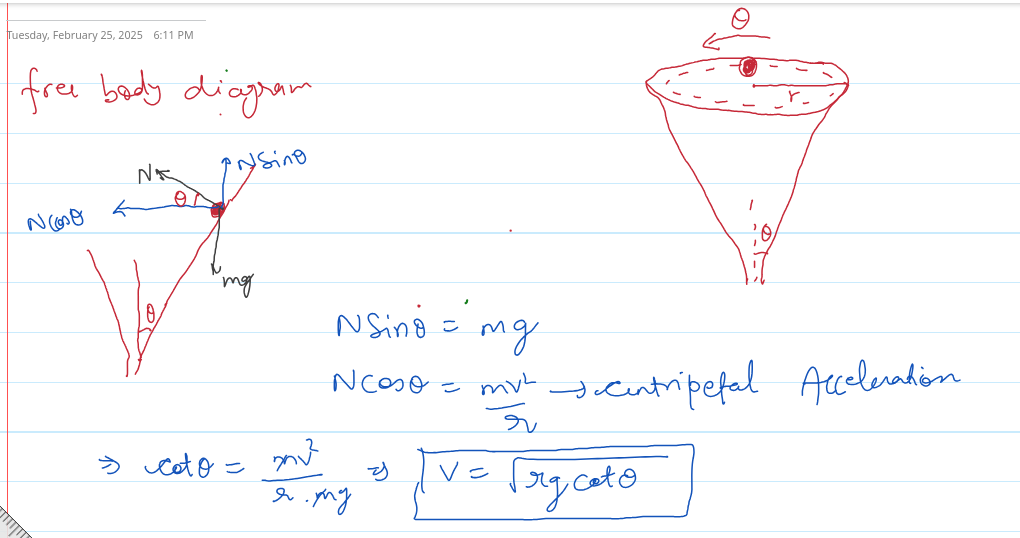 Tuesday, February 25, 2025 6:11 PM
θ
free body diagram
r
N
NSinθ
θ
NCosθ
θ
mg
θ
NSinθ = mg
NCosθ = mv²/r → centripetal Acceleration
⇒ cotθ = mv²/r.mg ⇒ V = √rg cotθ